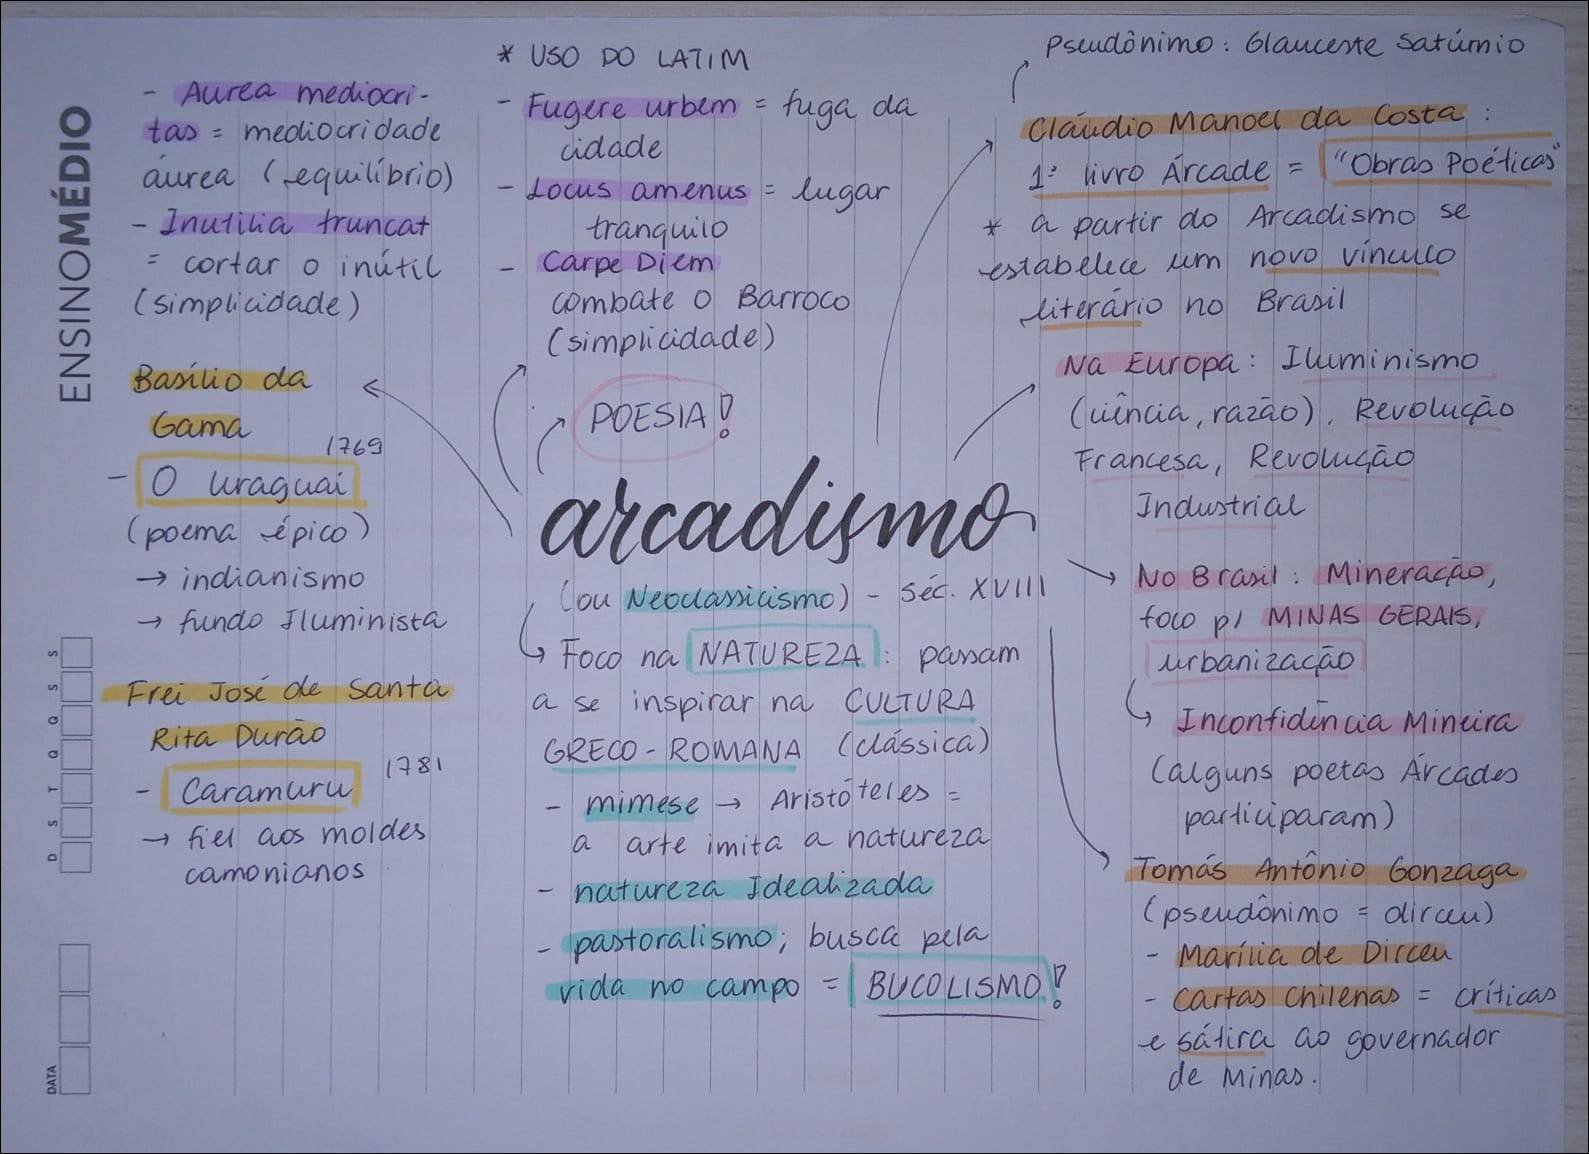 ENSINOMÉDIO
- Aurea mediocri-
tas = mediocridade
áurea (equilíbrio)
- Inutilia truncat
= cortar o inútil
(simplicidade)
* USO DO LATIM
- Fugere urbem = fuga da
cidade
- Locus amenus = lugar
tranquilo
- Carpe Diem
combate o Barroco
(simplicidade)
Pseudônimo: Glauceste Satúrnio
Cláudio Manoel da Costa:
1º livro Árcade = "Obras Poéticas"
* a partir do Arcadismo se
estabelece um novo vínculo
literário no Brasil
Na Europa: Iluminismo
(ciência, razão), Revolução
Francesa, Revolução
Industrial
Basílio da
Gama
1769
- O Uraguai
(poema épico)
→ indianismo
→ fundo Iluminista
Frei José de Santa
Rita Durão
1781
- Caramuru
→ fiel aos moldes
camonianos
POESIA!
arcadismo
(ou Neoclassicismo) - séc. XVIII
Foco na NATUREZA: passam
a se inspirar na CULTURA
GRECO-ROMANA (clássica)
- mimese → Aristóteles =
a arte imita a natureza
- natureza Idealizada
- pastoralismo; busca pela
vida no campo = BUCOLISMO!
No Brasil: Mineração,
foco p/ MINAS GERAIS,
urbanização
Inconfidência Mineira
(alguns poetas Árcades
participaram)
Tomás Antônio Gonzaga
(pseudônimo = dirceu)
- Marília de Dirceu
- Cartas Chilenas = críticas
e sátira ao governador
de Minas.
D S T Q Q S S
DATA